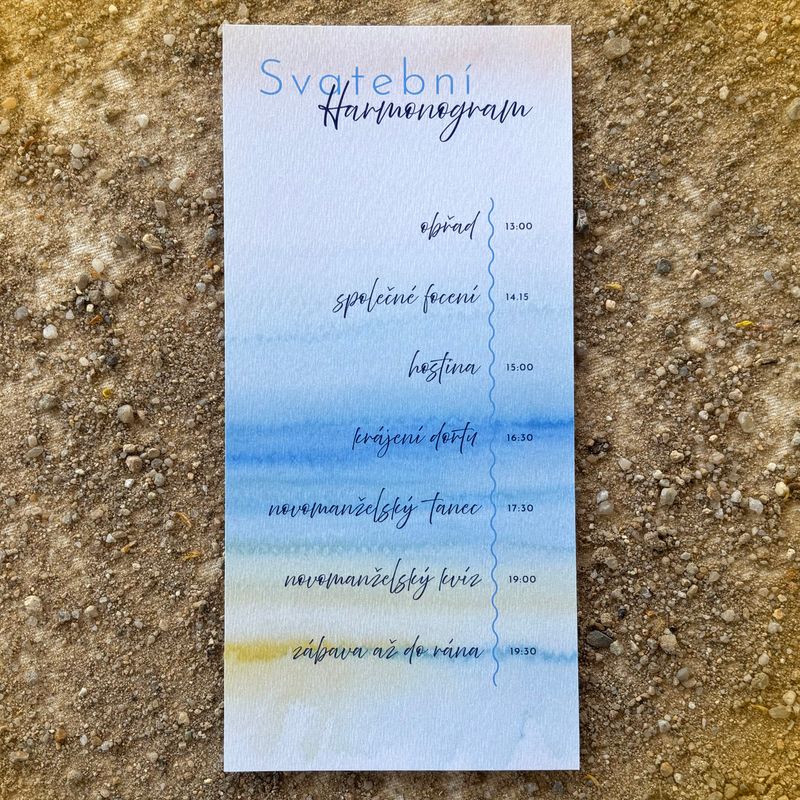 Svatební
Harmonogram
obřad 13:00
společné focení 14.15
hostina 15:00
krájení dortu 16:30
novomanželský tanec 17:30
novomanželský kvíz 19:00
zábava až do rána 19:30